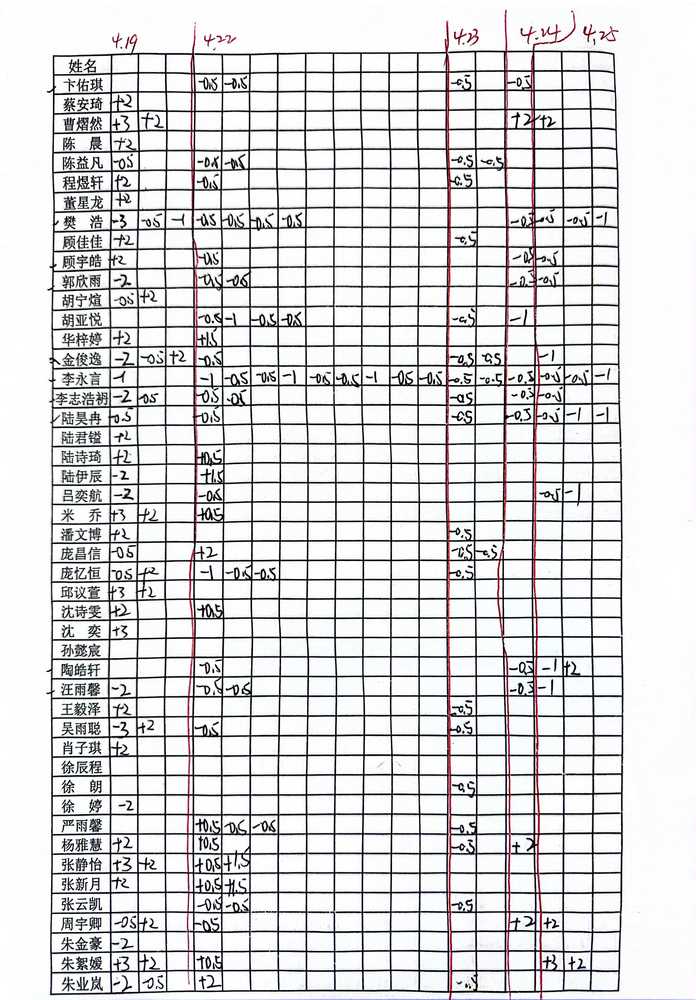 4.19 4.22 4.23 4.24 4.25
姓名
卞佑琪 -0.5 -0.5 -0.5 -0.5
蔡安琦 +2
曹熠然 +3 +2 +2 +2
陈晨 +2
陈益凡 -0.5 -0.5 -0.5 -0.5 -0.5
程煜轩 +2 -0.5 -0.5
董星龙 +2
樊浩 -3 -0.5 -1 -0.5 -0.5 -0.5 -0.5 -0.5 -0.5 -0.5 -1
顾佳佳 +2 -0.5
顾宇皓 +2 -0.5 -0.5 -0.5
郭欣雨 -2 -0.5 -0.5 -0.5 -0.5
胡宁煊 -0.5 +2
胡亚悦 -0.5 -1 -0.5 -0.5 -0.5 -1
华梓婷 +2 +1.5
金俊逸 -2 -0.5 +2 -0.5 -0.5 -0.5 -1
李永言 -1 -1 -0.5 -0.5 -1 -0.5 -0.5 -1 -0.5 -0.5 -0.5 -0.5 -0.5 -0.5 -0.5 -1
李志浩礽 -2 -0.5 -0.5 -0.5 -0.5 -0.5 -0.5
陆昊冉 -0.5 -0.5 -0.5 -0.5 -0.5 -1 -1
陆君镒 +2
陆诗琦 +2 +0.5
陆伊辰 -2 +1.5
吕奕航 -2 -0.5 -0.5 -1
米乔 +3 +2 +0.5
潘文博 +2 -0.5
庞昌信 -0.5 +2 -0.5 -0.5
庞忆恒 -0.5 +2 -1 -0.5 -0.5 -0.5
邱议萱 +3 +2
沈诗雯 +2 +0.5
沈奕 +3
孙懿宸
陶皓轩 -0.5 -0.5 -1 +2
汪雨馨 -2 -0.5 -0.5 -0.5 -1
王毅泽 +2 -0.5
吴雨聪 -3 +2 -0.5 -0.5
肖子琪 +2
徐辰程
徐朗 -0.5
徐婷 -2
严雨馨 +0.5 -0.5 -0.5 -0.5
杨雅慧 +2 +0.5 -0.5 +2
张静怡 +3 +2 +0.5 +1.5
张新月 +2 +0.5 +1.5
张云凯 -0.5 -0.5 -0.5
周宇卿 -0.5 +2 -0.5 +2 +2
朱金豪 -2
朱絮媛 +3 +2 +0.5 +3 +2
朱业岚 -2 -0.5 +2 -0.5